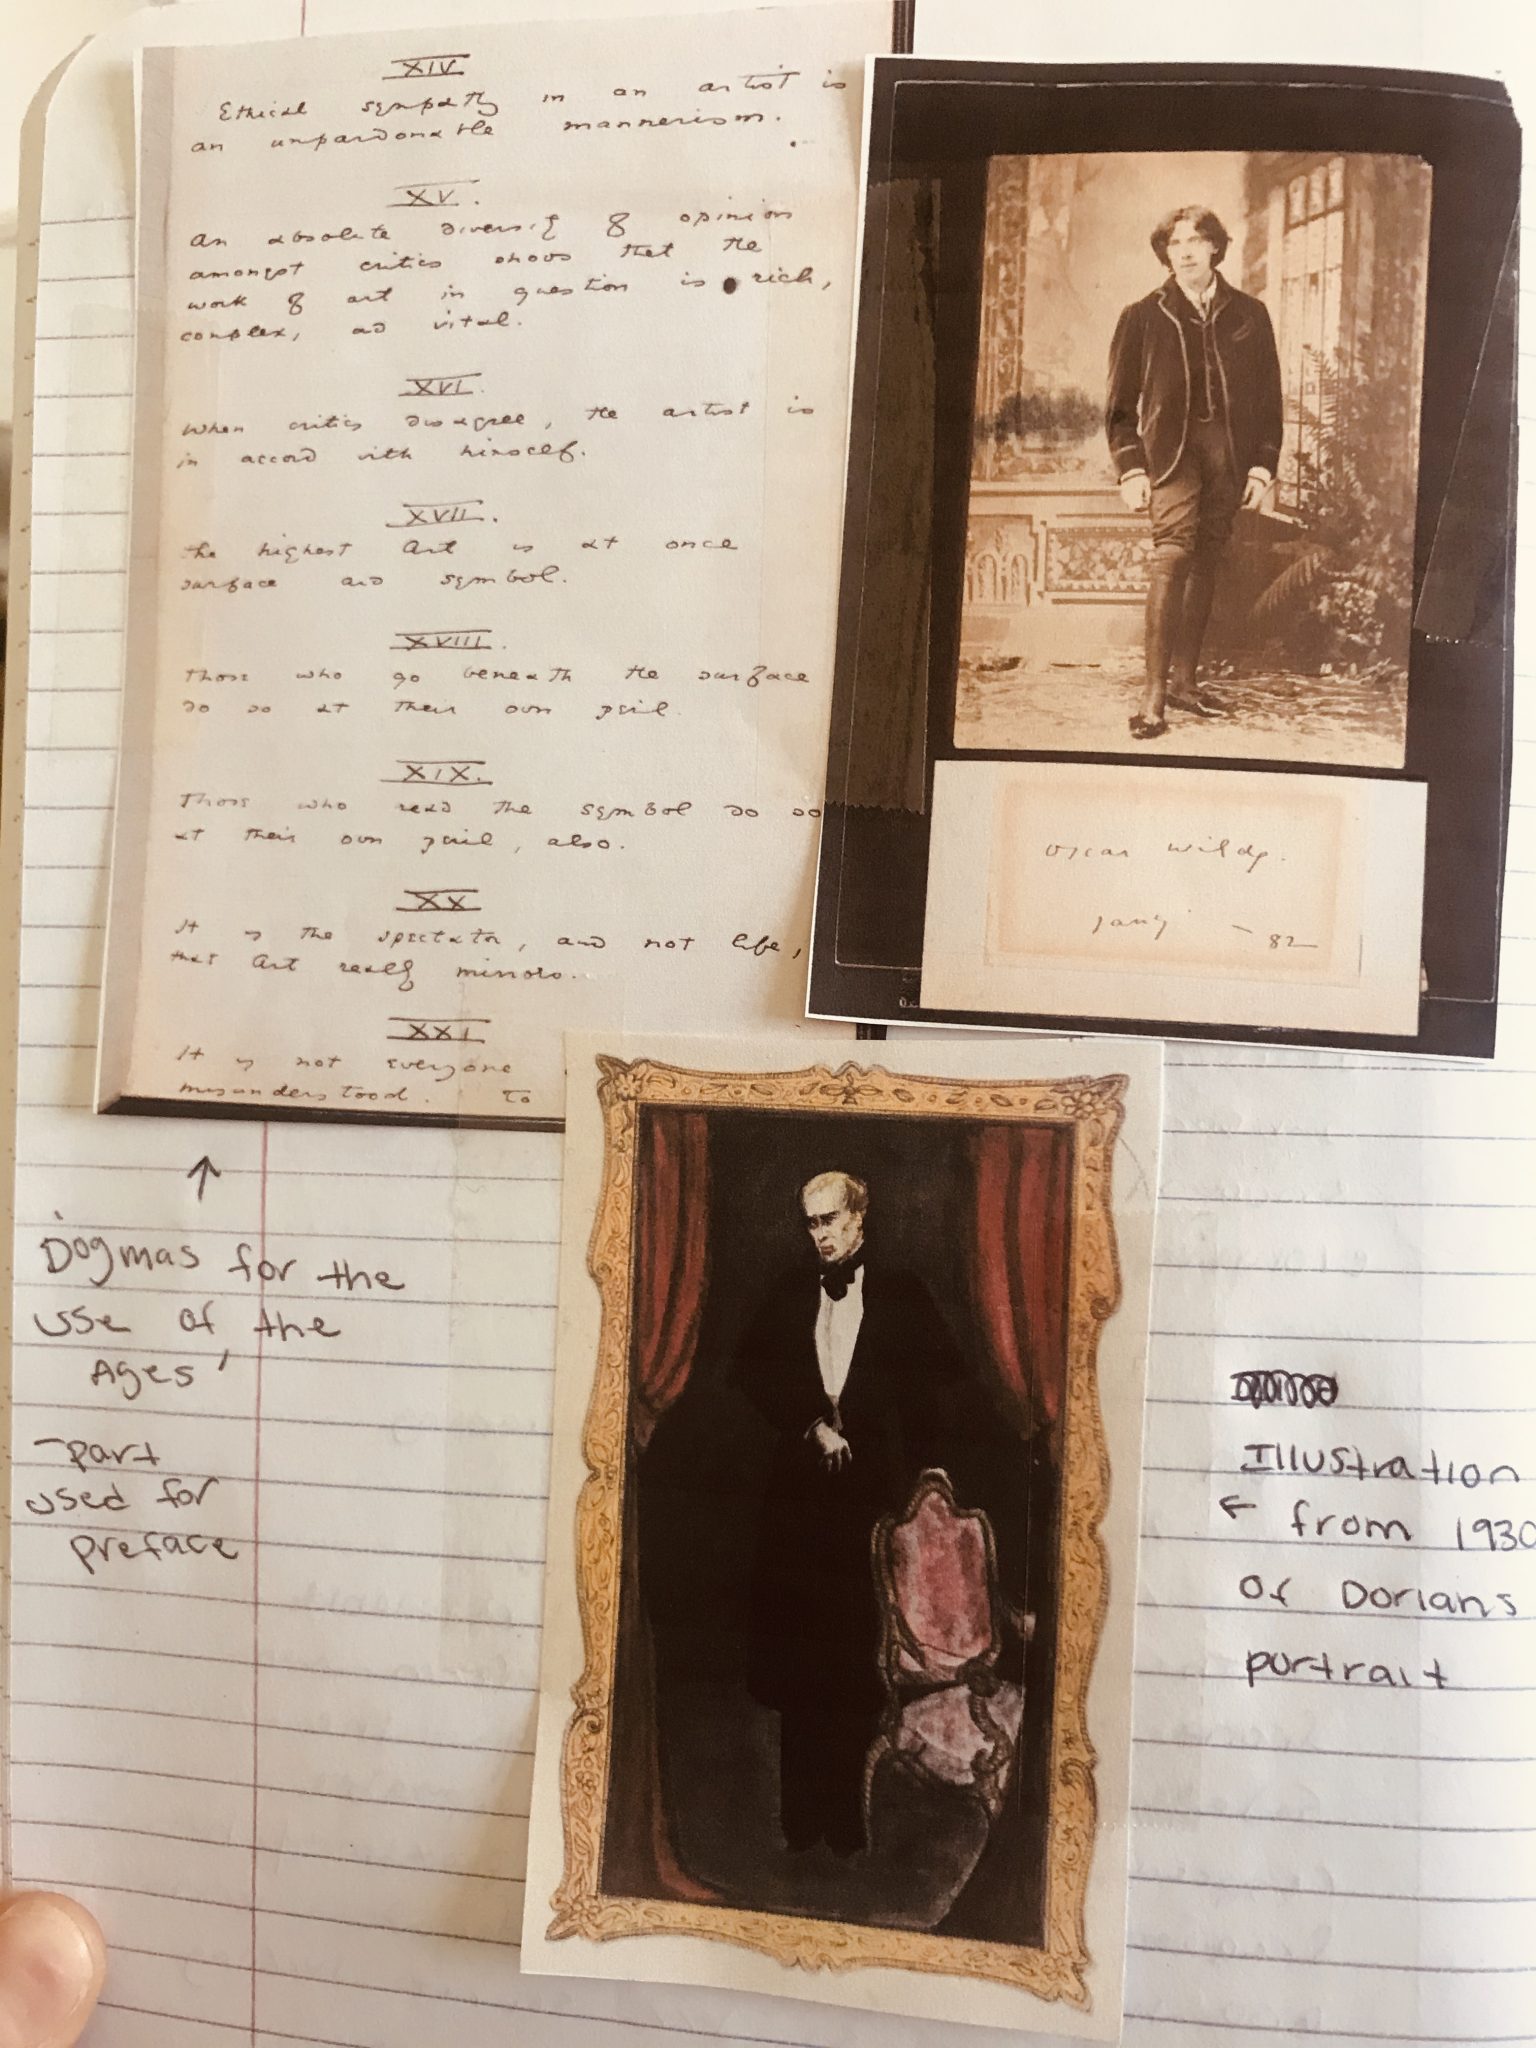 XIV
Ethical sympathy in an artist is
an unpardonable mannerism.
XV.
An absolute diversity of opinion
amongst critics shows that the
work of art in question is rich,
complex, and vital.
XVI.
When critics disagree, the artist is
in accord with himself.
XVII.
The highest Art is at once
surface and symbol.
XVIII.
Those who go beneath the surface
do so at their own peril.
XIX.
Those who read the symbol do so
at their own peil, also.
XX
It is the spectator, and not life,
that Art really mirrors.
XXI
It is not everyone
misunderstood. To
Oscar Wilde.
Jany - 82
'Dogmas for the
use of the
Ages'
- part
used for
preface
Illustration
← from 1930
of Dorians
portrait